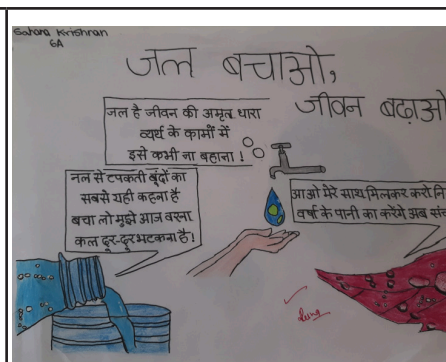 Sahana Krishnan
6A
जल बचाओ,
जीवन बढ़ाओ
जल है जीवन की अमृत धारा
व्यर्थ के कामों में
इसे कभी ना बहाना !
नल से टपकती बूंदों का
सबसे यही कहना है
बचा लो मुझे आज वरना
कल दूर-दूर भटकना है!
आओ मेरे साथ मिलकर करो
वर्षा के पानी का करेंगे अब